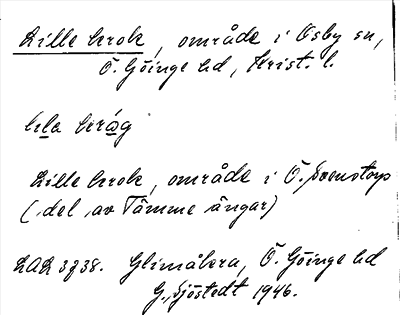 Lille krok, område i Osby sn,
Ö. Göinge hd, Krist. l.
lla kråg
Lille krok, område i Ö. Svenstorp
(del av Tämme ängar)
LAL 3738. Glimåkra, Ö. Göinge hd
G. Sjöstedt 1946.